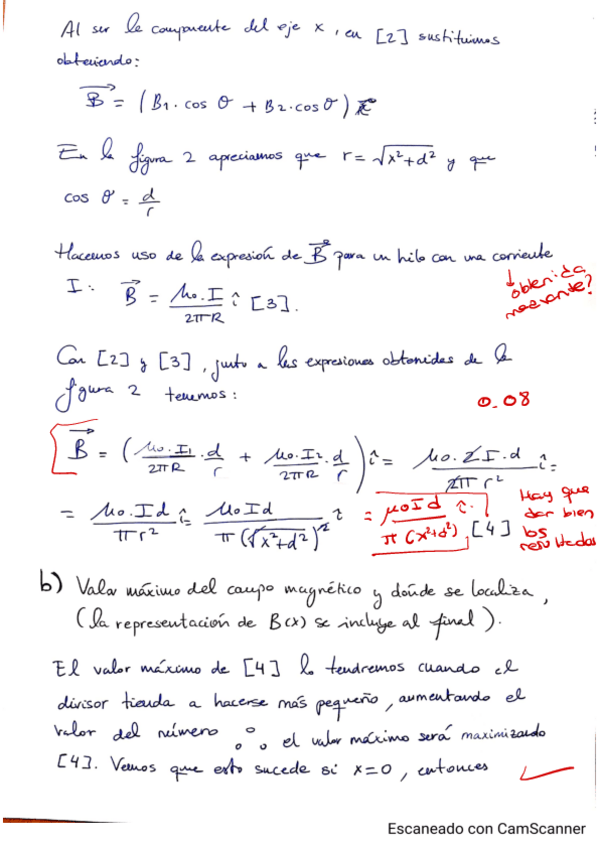 Al ser la componente del eje x, en [2] sustituimos
obteniendo:
B⃗ = (B₁·cos θ + B₂·cos θ)
En la figura 2 apreciamos que r = √(x²+d²) y que
cos θ = d/r
Hacemos uso de la expresión de B⃗ para un hilo con una corriente
I: B⃗ = μ₀·I/2πR î [3].
↓ obtenida
mediante?
Con [2] y [3], junto a las expresiones obtenidas de la
figura 2 tenemos:
0.08
B⃗ = (μ₀·I₁/2πR · d/r + μ₀·I₂/2πR · d/r) î = μ₀·2I·d/2π r² î =
= μ₀·Id/π r² î = μ₀Id/π(√(x²+d²))² î = μ₀Id/π(x²+d²) î. [4]
Hay que
dar bien
los
resultados
b) Valor máximo del campo magnético y dónde se localiza,
(la representación de B(x) se incluye al final).
El valor máximo de [4] lo tendremos cuando el
divisor tienda a hacerse más pequeño, aumentando el
valor del número ∴ el valor máximo será maximizando
[4]. Vemos que esto sucede si x=0, entonces
Escaneado con CamScanner